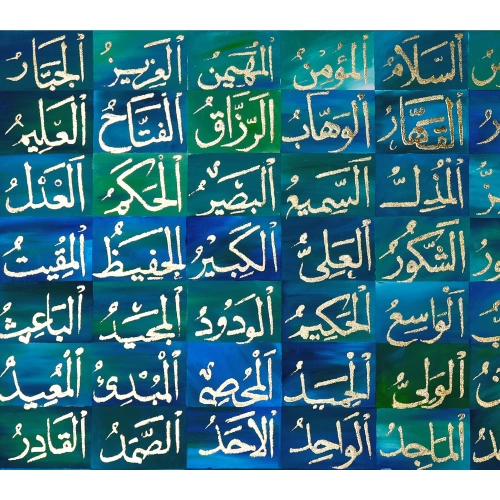 السلام المؤمن المهيمن العزيز الجبار
القهار الوهاب الرزاق الفتاح العليم
المذل السميع البصير الحكم العدل
الشكور العلي الكبير الحفيظ المقيت
الواسع الحكيم الودود المجيد الباعث
الولي الحميد المحصي المبدئ المعيد
الماجد الواحد الأحد الصمد القادر